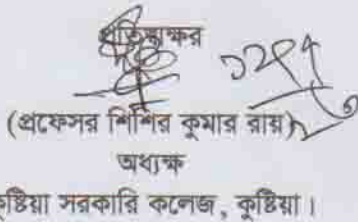 প্রতিস্বাক্ষর
(প্রফেসর শিশির কুমার রায়)
অধ্যক্ষ
কুষ্টিয়া সরকারি কলেজ, কুষ্টিয়া।